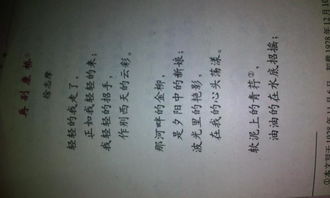 再别康桥①
徐志摩
轻轻的我走了,
正如我轻轻的来;
我轻轻的招手,
作别西天的云彩。
那河畔的金柳,
是夕阳中的新娘;
波光里的艳影,
在我的心头荡漾。
软泥上的青荇②,
油油的在水底招摇;